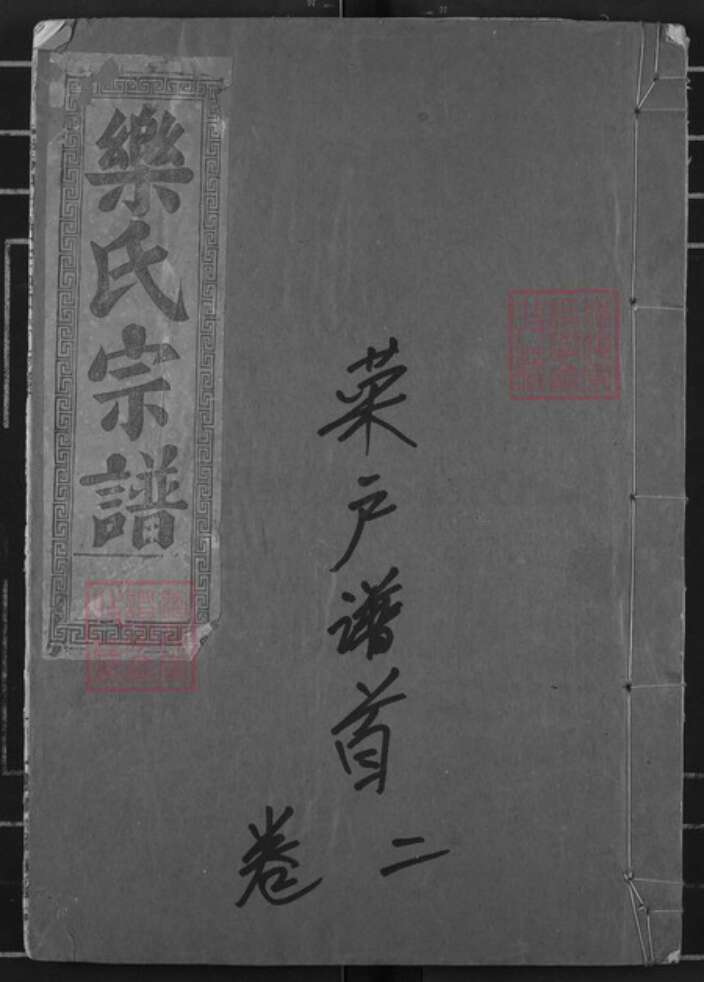 樂氏宗譜
菜户谱首
卷二